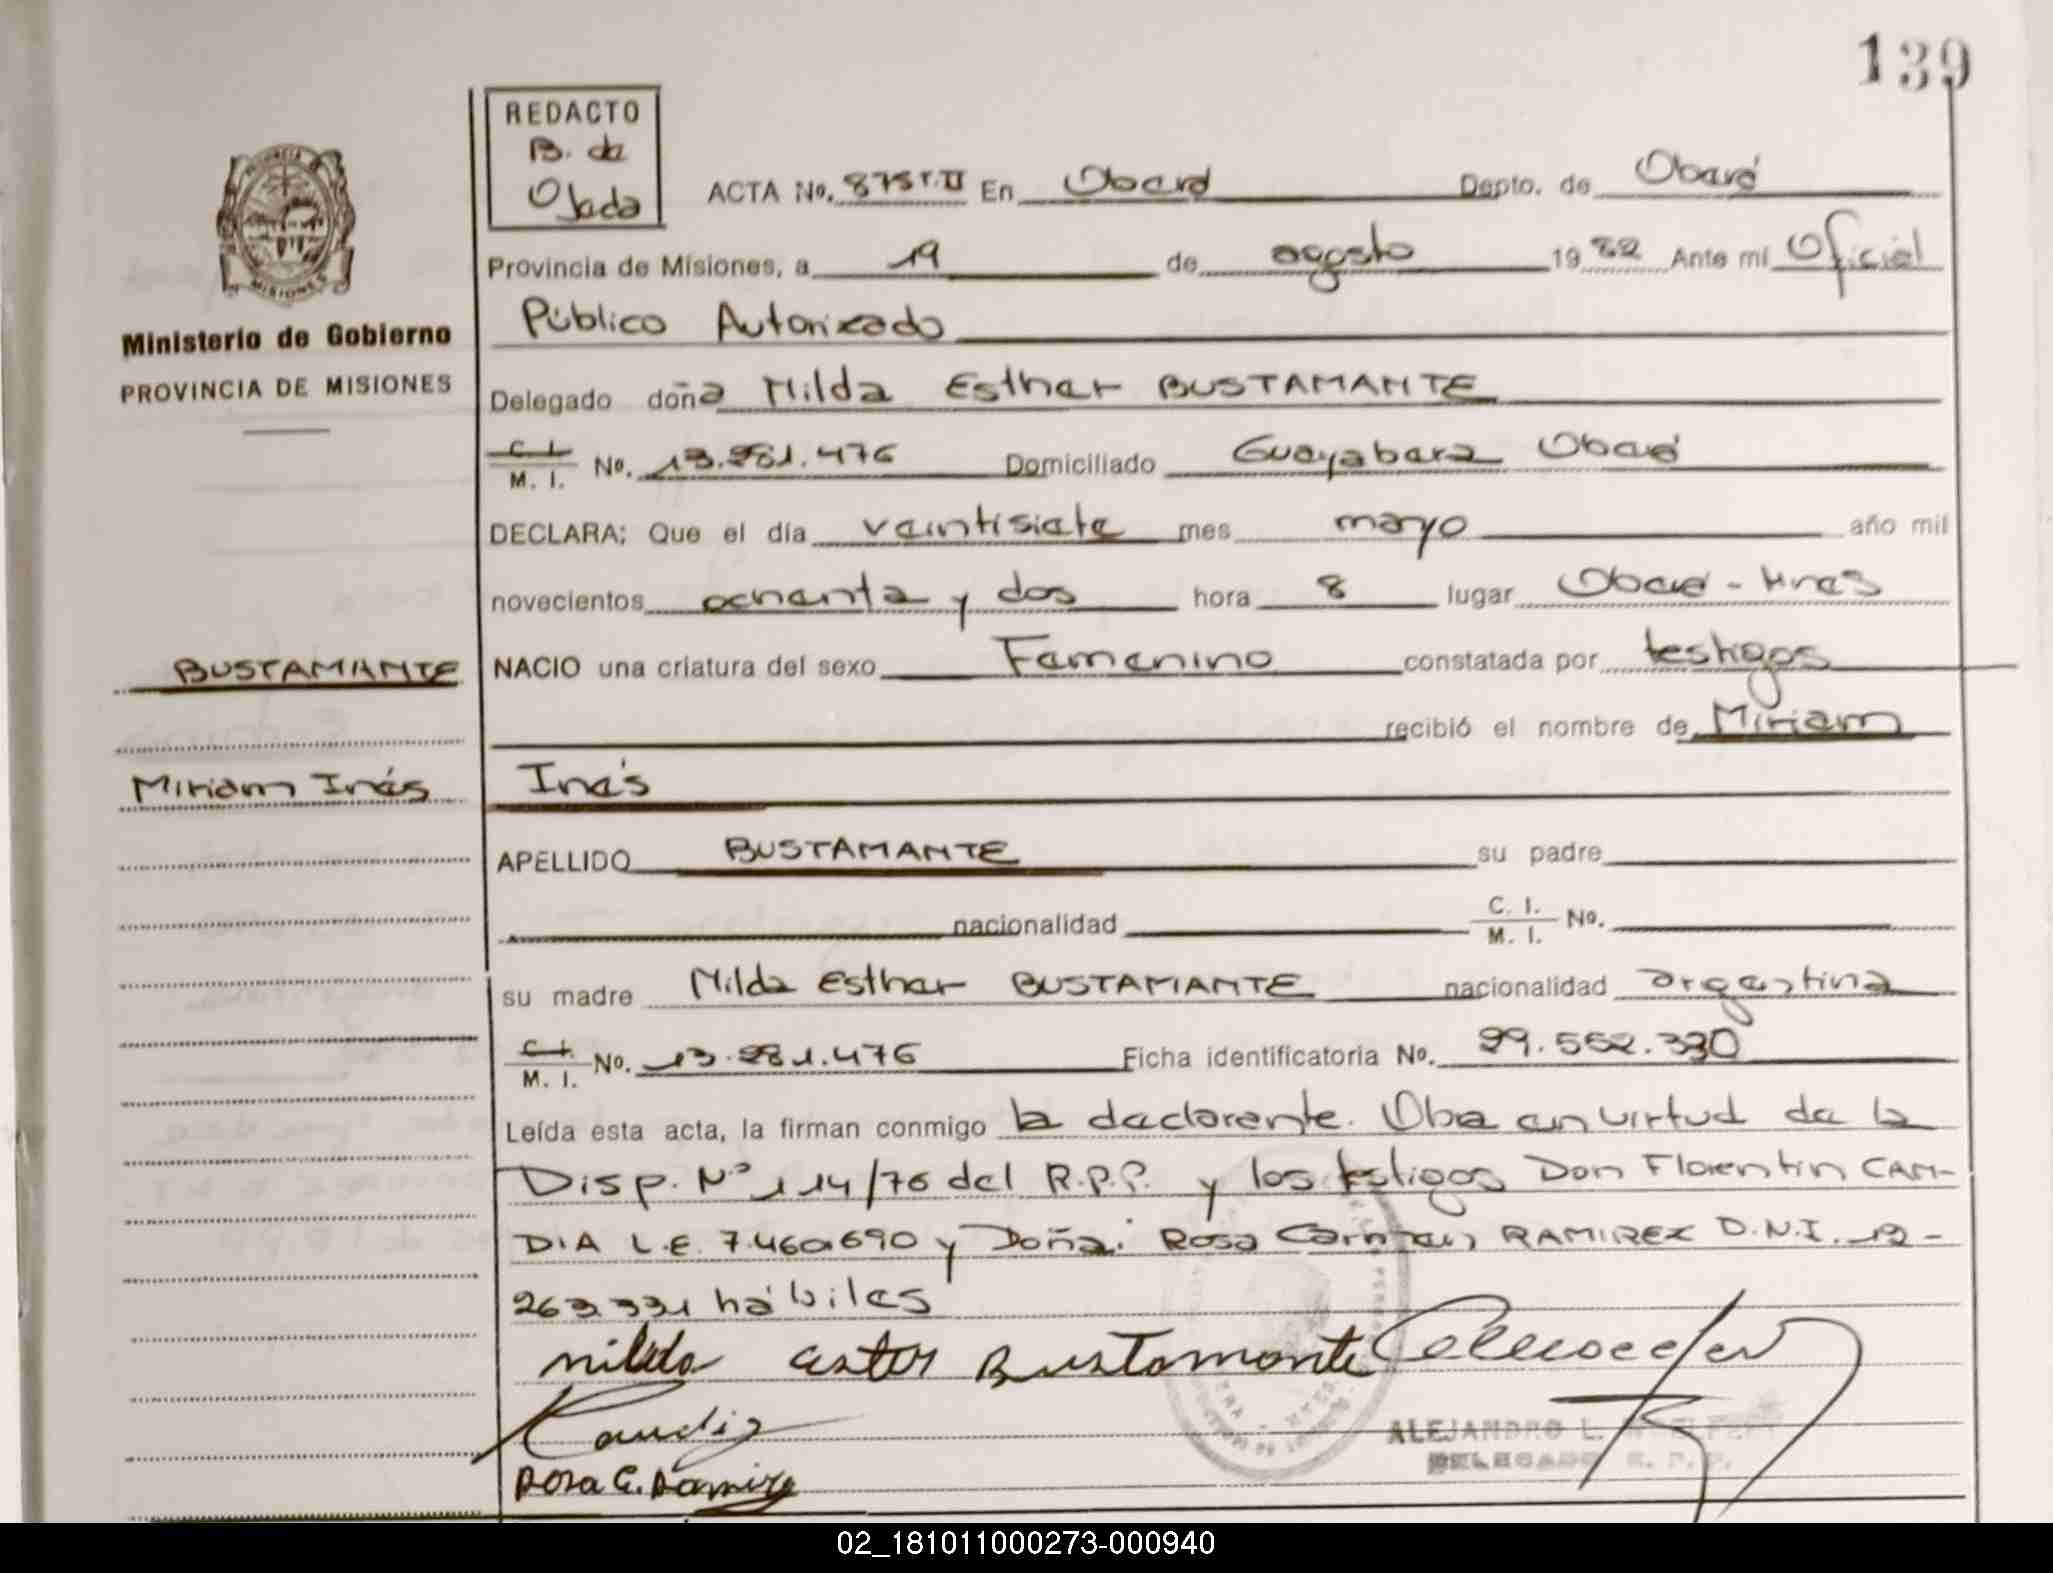 139
REDACTO
B. de
Ojeda
ACTA No. 875 T.II En Oberá Depto. de Oberá
Provincia de Misiones, a 19 de agosto 1982 Ante mí Oficial
Público Autorizado
Ministerio de Gobierno
PROVINCIA DE MISIONES
Delegado doña Nilda Esther BUSTAMANTE
C. I. / M. I. No. 13.281.476 Domiciliado Guayabera Oberá
DECLARA: Que el día veintisiete mes mayo año mil
novecientos ochenta y dos hora 8 lugar Oberá - Mnes
BUSTAMANTE
NACIO una criatura del sexo Femenino constatada por testigos
recibió el nombre de Miriam
Miriam Inés
Inés
APELLIDO BUSTAMANTE su padre
nacionalidad C. I. / M. I. No.
su madre Nilda Esther BUSTAMANTE nacionalidad argentina
C. I. / M. I. No. 13.281.476 Ficha identificatoria No. 29.552.330
Leída esta acta, la firman conmigo la declarante. Obra en virtud de la
Disp. Nº 114/76 del R.P.P. y los testigos Don Florentin CAN-
DIA L.E. 7.460.690 y Doña: Rosa Carmen RAMIREZ D.N.I. 12-
263.331 hábiles
nilda ester Bustamante
Candia
Rosa C. Ramirez
ALEJANDRO L.
DELEGADO R. P. P.
02_181011000273-000940